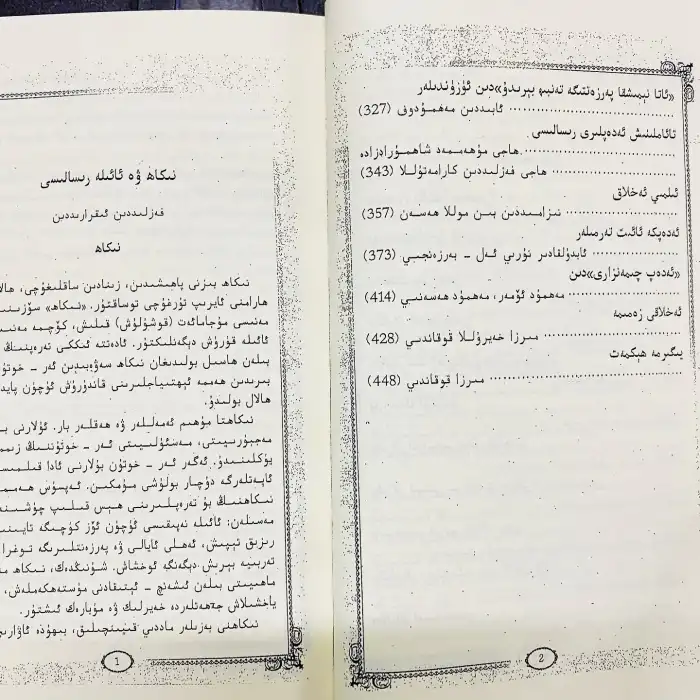 «ئاتا نېمىشقا پەرزەنتىگە تەنبىھ بېرىدۇ»دىن ئۈزۈندىلەر
ئابىددىن مەھمۇدوف (327)
تائاملىنىش ئەدەپلىرى رىسالىسى
ھاجى مۇھەممەد شاھمۇرادزادە
ھاجى فەزلىددىن كارامەتۇللا (343)
ئىلمىي ئەخلاق
نىزامىددىن بىن موللا ھەسەن (357)
ئەدەپكە ئائىت تەرمىلەر
ئابدۇلقادىر نۇرىي ئەل - بەرزەنجىي (373)
«ئەدەپ چىمەنزارى»دىن
مەھمۇد ئۆمەر، مەھمۇد ھەسەنىي (414)
ئەخلاقى زەمىمە
مىرزا خەيرۇللا قوقاندىي (428)
يىگىرمە ھېكمەت
مىرزا قوقاندىي (448)
2
نىكاھ ۋە ئائىلە رىسالىسى
فەزلىددىن ئىقرارىددىن
نىكاھ
نىكاھ بىزنى پاھىشىدىن، زىنادىن ساقلىغۇچى، ھالا
ھارامنى ئايرىپ تۇرغۇچى توساقتۇر. «نىكاھ» سۆزىنىـ
مەنىسى مۇجامائەت (قوشۇلۇش) قىلىش، كۆچمە مەنىـ
ئائىلە قۇرۇش دېگەنلىكتۇر. ئادەتتە ئىككى تەرەپنىڭ
بىلەن ھاسىل بولىدىغان نىكاھ سەۋەبىدىن ئەر - خوتۇ
بىرىدىن ھەممە ئېھتىياجلىرىنى قاندۇرۇش ئۈچۈن پايد
ھالال بولىدۇ.
نىكاھتا مۇھىم ئەمەللەر ۋە ھەقلەر بار. ئۇلارنى بـ
مەجبۇرىيىتى، مەسئۇلىيىتى ئەر - خوتۇننىڭ زىممـ
يۈكلىنىدۇ. ئەگەر ئەر - خوتۇن بۇلارنى ئادا قىلمىسـ
ئاپەتلەرگە دۇچار بولۇشى مۇمكىن. ئەپسۇس ھەممـ
نىكاھنىڭ بۇ تەرەپلىرىنى ھېس قىلىپ چۈشىنـ
مەسىلەن: ئائىلە نەپىقىسى ئۈچۈن ئۆز كۈچىگە تايىنىـ
رىزىق تېپىش، ئەھلى ئايالى ۋە پەرزەنتلىرىگە توغرا
تەربىيە بېرىش دېگەنگە ئوخشاش. شۇنىڭدەك، نىكاھ مـ
ماھىيىتى بىلەن ئىشەنچ - ئېتىقادنى مۇستەھكەملەش،
ياخشىلاش جەھەتلەردە خەيرلىك ۋە مۇبارەك ئىشتۇر.
نىكاھنى بەزىلەر ماددىي قىيىنچىلىق، بىھۇدە ئاۋارىـ
1